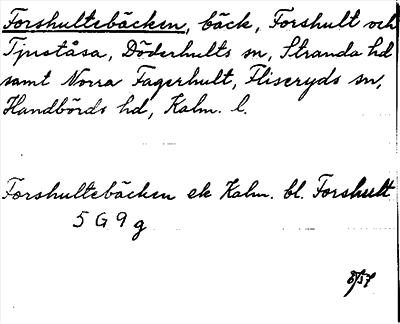 Forshultebäcken, bäck, Forshult och
Tjuståsa, Döderhults sn, Stranda hd
samt Norra Fagerhult, Fliseryds sn,
Handbörds hd, Kalm. l.
Forshultebäcken ek Kalm. bl. Forshult
5 G 9 g